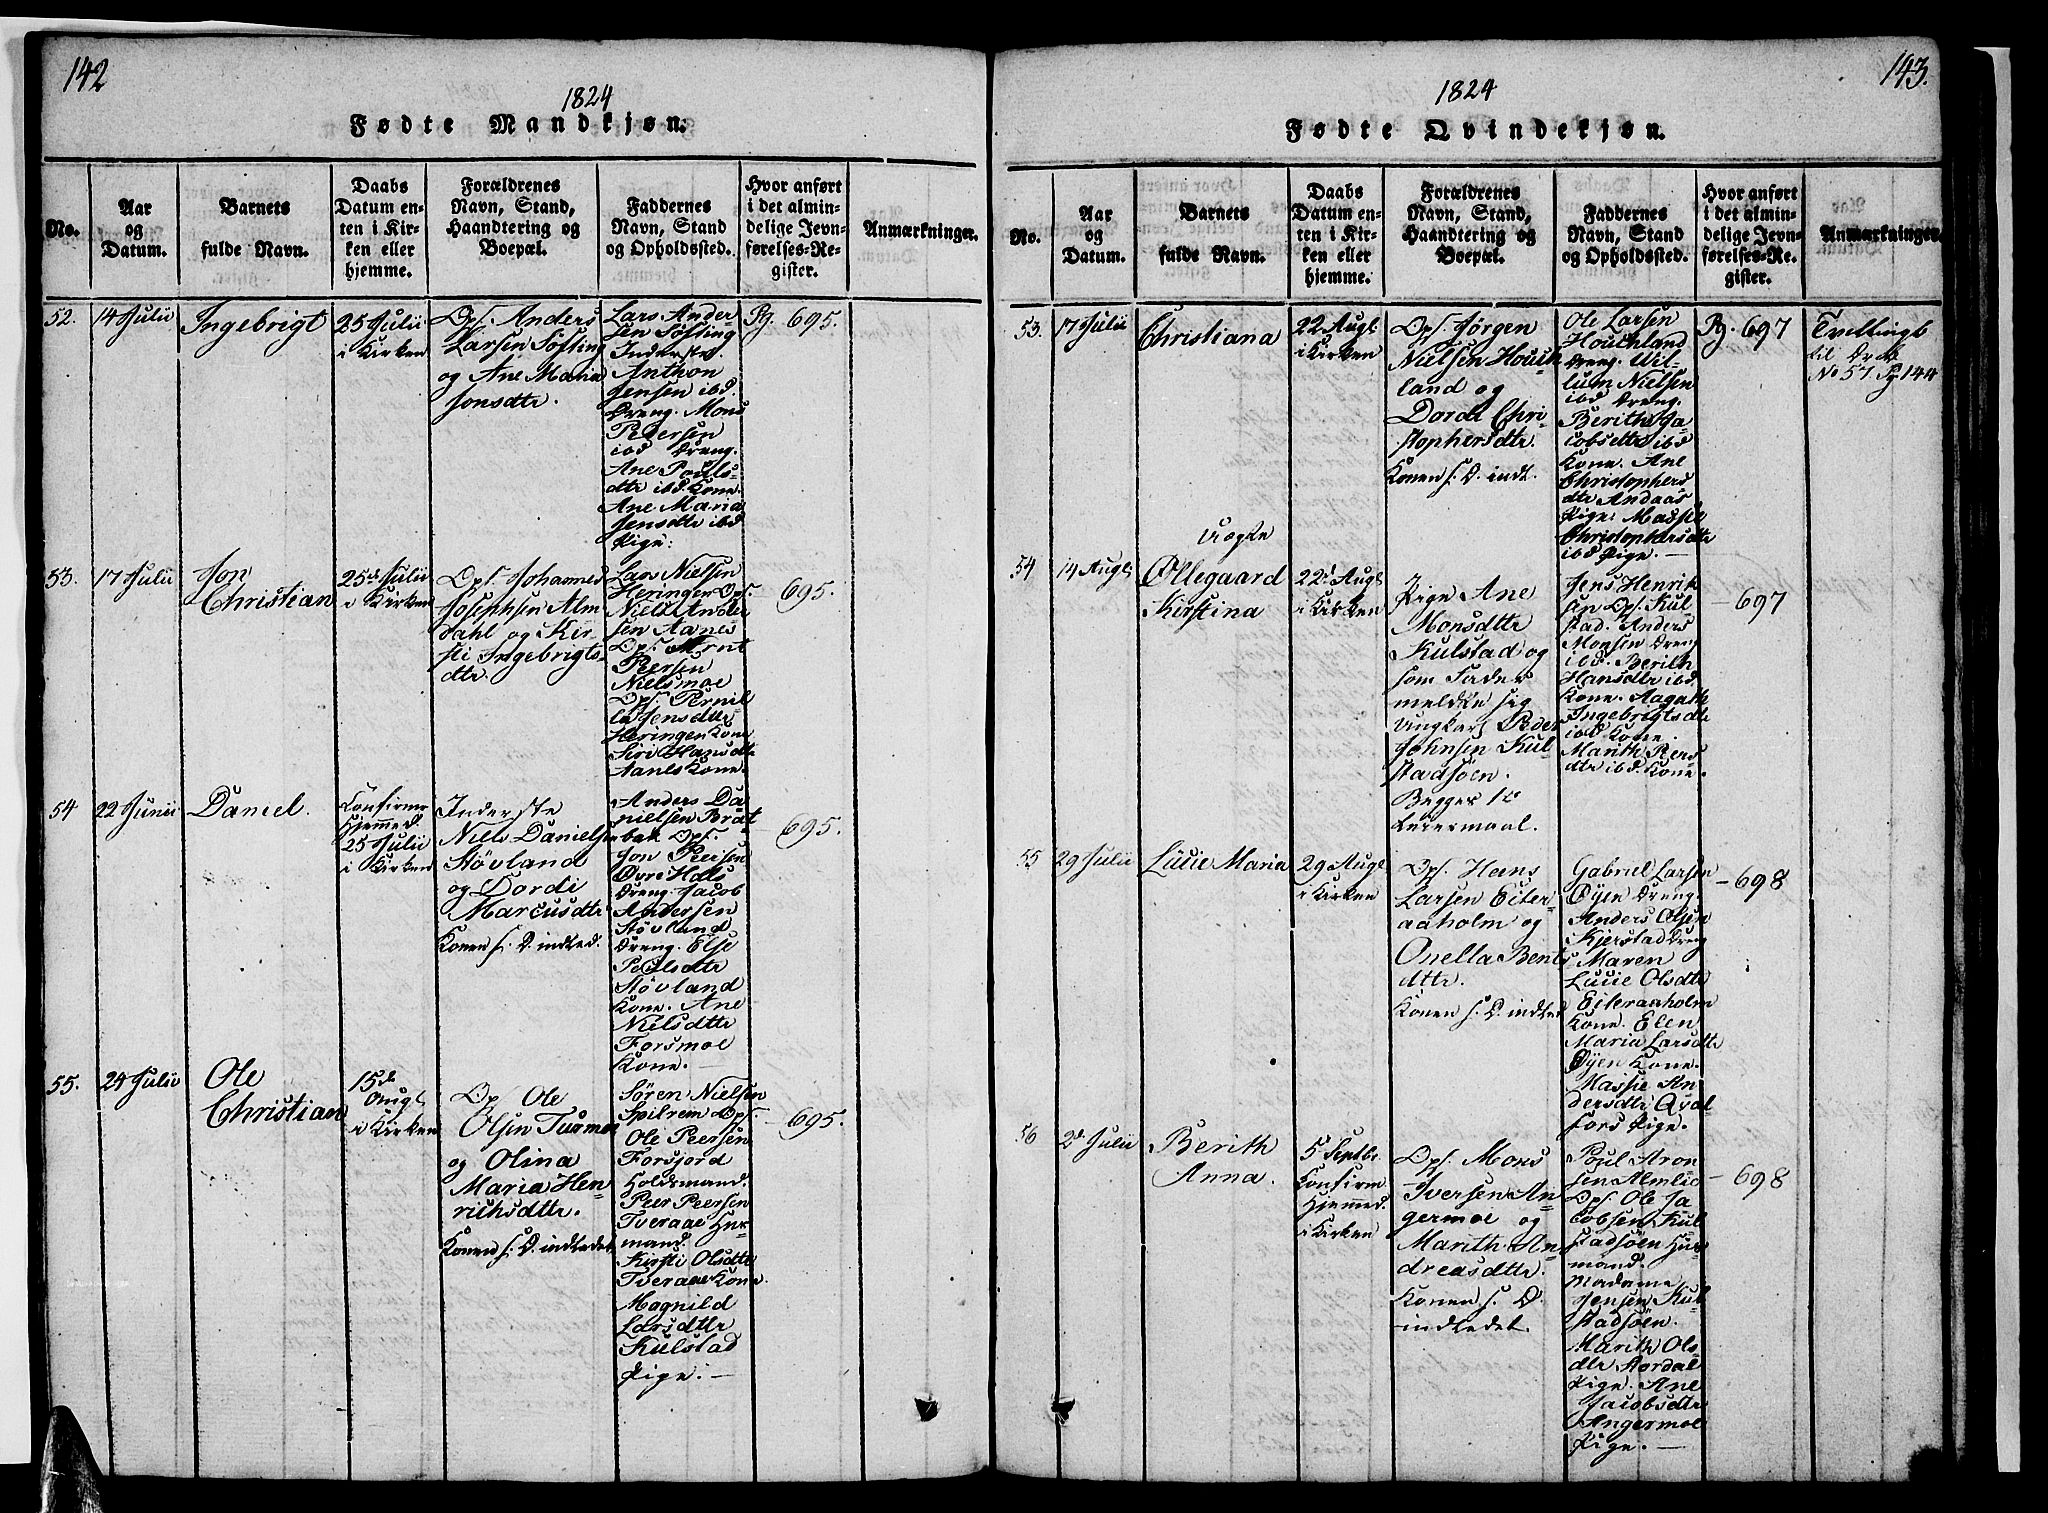 142
1824
Fødte Mandkjøn.
No.
Aar
og
Datum.
Barnets
fulde Navn.
Daabs
Datum en-
ten i Kir-
ken eller
hjemme.
Forældrenes
Navn, Stand,
Haandtering og
Boepæl.
Faddernes
Navn, Stand
og Opholdssted.
Hvor anført
i det almin-
delige Jevn-
førelses-Re-
gister.
Anmærkninger.
52.
14 Julii
Ingebrigt
25 Julii
i Kirken
Ops. Anders
Larsen Søfting
og Ane Maria
Jonsdtr.
Lars Ander
sen Søfting
Inderste.
Anthon
Jensen ibd.
Dreng. Mons
Pedersen
ibd Dreng.
Ane Pouls-
dtr ibd. Kone.
Ane Maria
Jensdtr ibd
Pige.
Pg. 695.
53.
17 Julii
Jon
Christian
25de Julii
i Kirken
Ops. Johannes
Josephsen Alm-
dahl og Kir-
sti Ingebrigts-
dtr.
Lars Nielsen
Heringen Ops.
Niels Ander
sen Aanes
Ops. Arnt
Peersen
Nielsmoe
Ops. Pernil
la Jensdtr
Heringen Kone
Siri Hansdtr
Aanes Kone.
- 695.
54
22 Junii
Daniel.
Confirme
Hjemmed.
25 Julii
i Kirken
Inderste
Niels Danielsen
Støvland
og Dordi
Marcusdtr
Konen s. D. indled.
Anders Da-
nielsen Brat-
bak Ops.
Jon Peersen
Øvre Hals
Dreng. Jacob
Andersen
Støvland
Dreng. Else
Peulsdtr
Støvland
Kone. Ane
Nielsdtr
Forsmoe
Kone.
- 695.
55.
24 Julii
Ole
Christian
15de
Augt
i Kirken
Ops. Ole
Olsen Turmoe
og Olina
Maria Hen-
richsdtr.
Konen s. D. indledet
Søren Nielsen
Spilrem Ops.
Ole Peersen
Forsjord
Holdsmand.
Peer Peersen
Tveraae Huus-
mand.
Kirsti Olsdtr
Tveraae Kone.
Magnild
Larsdtr
Kulstad
Pige. —
- 695.
143.
1824
Fødte Qvindekjøn.
No.
Aar
og
Datum.
Barnets
fulde Navn.
Daabs
Datum en-
ten i Kir-
ken eller
hjemme.
Forældrenes
Navn, Stand,
Haandtering og
Boepæl.
Faddernes
Navn, Stand
og Opholdssted.
Hvor anført
i det almin-
delige Jevn-
førelses-Re-
gister.
Anmærkninger.
53.
17 Julii
Christiana
22 Augt
i Kirken
Ops. Jørgen
Nielsen Houk-
land og
Dordi Chri-
stophersdtr.
Konen s. D. indt.
Ole Larsen
Houchland
Dreng. Wil-
lum Nielsen
ibd Dreng.
Berith Ja-
cobsdtr ibd
Kone. Ane
Christophers
dtr Andaas
Pige. Massie
Christophersdtr
ibd Pige. —
Pg. 697
Tvilling
til
No 57 Pg 144
54
14 Augt
Uægte
Ollegaard
Kirstina
22d Augt
i Kirken
Pige Ane
Monsdtr
Kulstad og
som Fader
meldte sig
Ungkarl Peer
Johnsen Kul-
stadsøen.
Begges 1te
Leiermaal.
Jens Henrik
sen Ops. Kul
stad. Anders
Monsen Dreng
ibd. Berith
Hansdtr ibd.
Kone. Aagathe
Ingebrigtsdtr
ibd Kone.
Marith Peers
dtr ibd. Kone.
- 697
55
29 Julii
Lucie Maria
29 Augt
i Kirken
Ops. Hans
Larsen Eiter-
aaholm og
Onella Bents
dtr.
Konen s. D. indled
Gabriel Larsen
Øyen Dreng.
Anders Olsen
Kjerstad Dreng
Maren
Lucie Olsdtr
Eiteraaholm
Kone. Elen
Maria Larsdtr
Øyen Kone.
Massie An
dersdtr Qval
fors Pige.
- 698
56
2d Julii
Berith
Anna.
5 Septbr.
Confirm
Hjemmed.
i Kirken
Ops. Mons
Iversen An-
germoe og
Marith An-
dreasdtr.
Konen s. D.
indledet.
Poul Aron
sen Almlie
Ops. Ole Ja-
cobsen Kul
stadsøen Huus
mand.
Madame
Jensen Kul
stadsøen.
Marith Ols-
dtr Aardal
Pige. Ane
Jacobsdtr
Angermoe
Pige. —
- 698